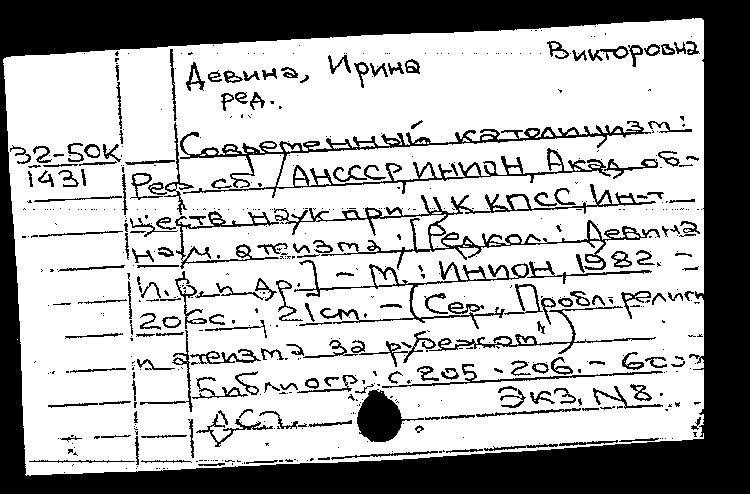 Девина, Ирина Викторовна
ред.
32-50К Современный католицизм:
1431 Реф. сб. / АНСССР, ИНИОН, Акад. об-
ществ. наук при ЦК КПСС, Ин-т
науч. атеизма ; [Редкол.: Девина
И.В. и др.] - М.: ИНИОН, 1982. -
206с. ; 21см. - (Сер. "Пробл. религи
и атеизма за рубежом")
Библиогр.: с. 205 - 206. -
ДСП. Экз. N8.